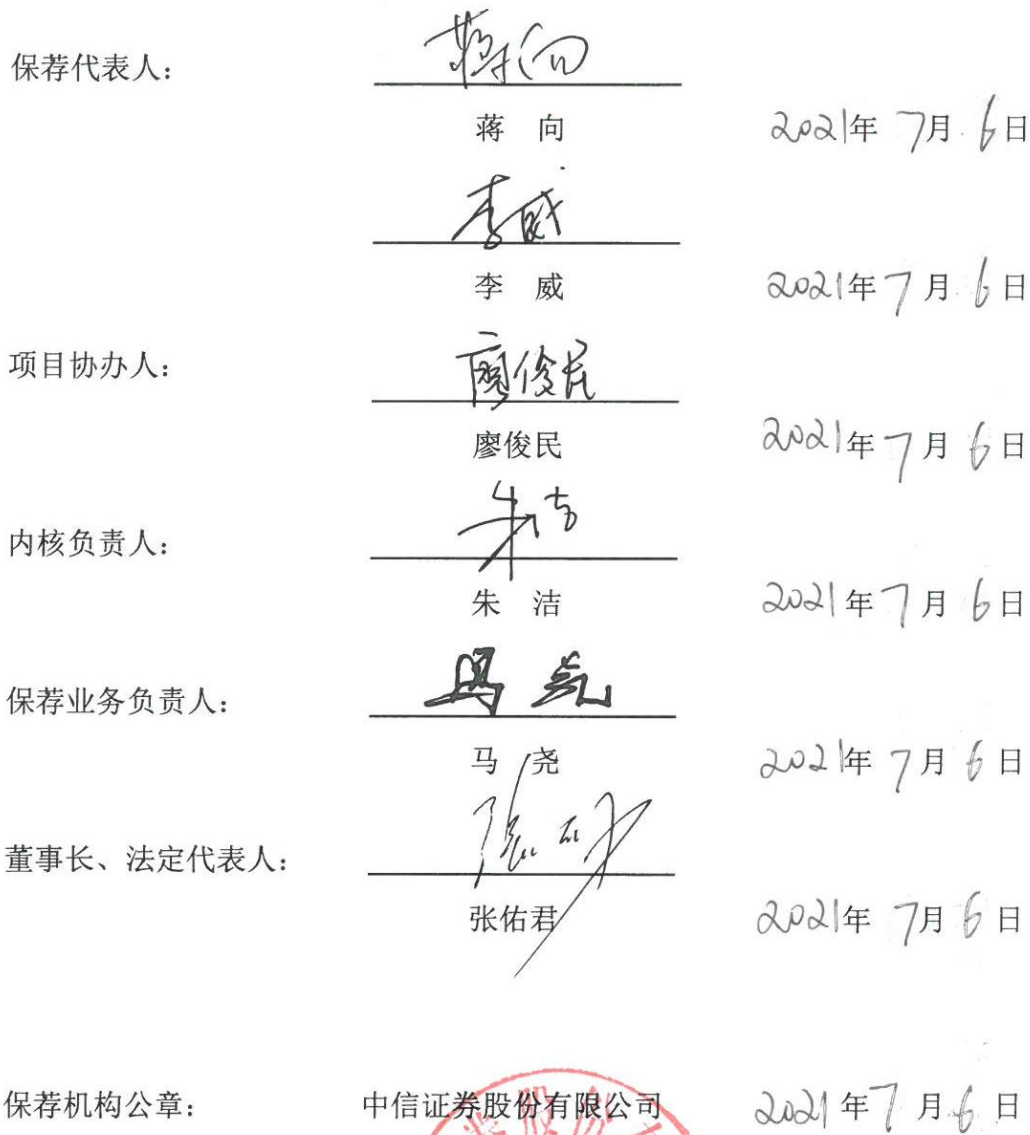 保荐代表人：
蒋向
蒋 向 2021年 7月 6日
李威
李 威 2021年 7月 6日
项目协办人：
廖俊民
廖俊民 2021年 7月 6日
内核负责人：
朱洁
朱 洁 2021年 7月 6日
保荐业务负责人：
马尧
马 尧 2021年 7月 6日
董事长、法定代表人：
张佑君 2021年 7月 6日
保荐机构公章： 中信证券股份有限公司 2021年 7月 6日